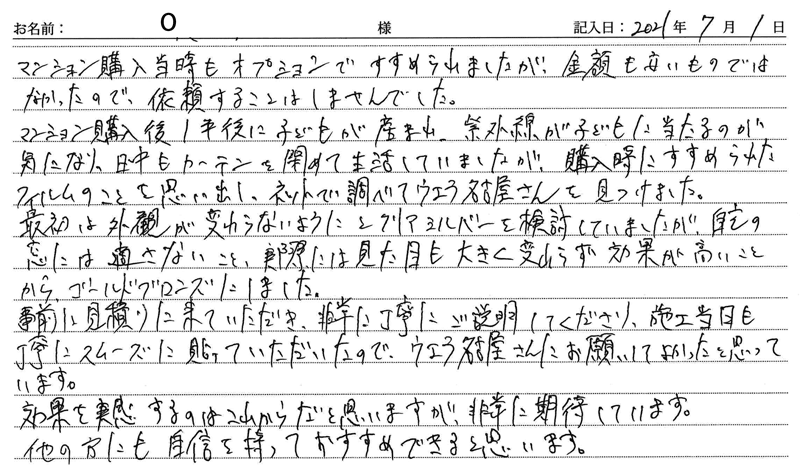 お名前： O 様 記入日：2021年 7月 1日
マンション購入当時もオプションですすめられましたが、金額も安いものでは
なかったので、依頼することはしませんでした。
マンション購入後1年後に子どもが産まれ、紫外線が子どもに当たるのが
気になり、日中もカーテンを閉めて生活していましたが、購入時にすすめられた
フィルムのことを思い出し、ネットで調べてウエラ名古屋さんを見つけました。
最初は外観が変わらないようにとクリアシルバーを検討していましたが、自宅の
窓には適さないこと、実際には見た目も大きく変わらず効果が高いこと
から、ゴールドブロンズにしました。
事前に見積りに来ていただき、非常に丁寧にご説明してくださり、施工当日も
丁寧にスムーズに貼っていただいたので、ウエラ名古屋さんにお願いしてよかったと思って
います。
効果を実感するのはこれからだと思いますが、非常に期待しています。
他の方にも自信を持っておすすめできると思います。